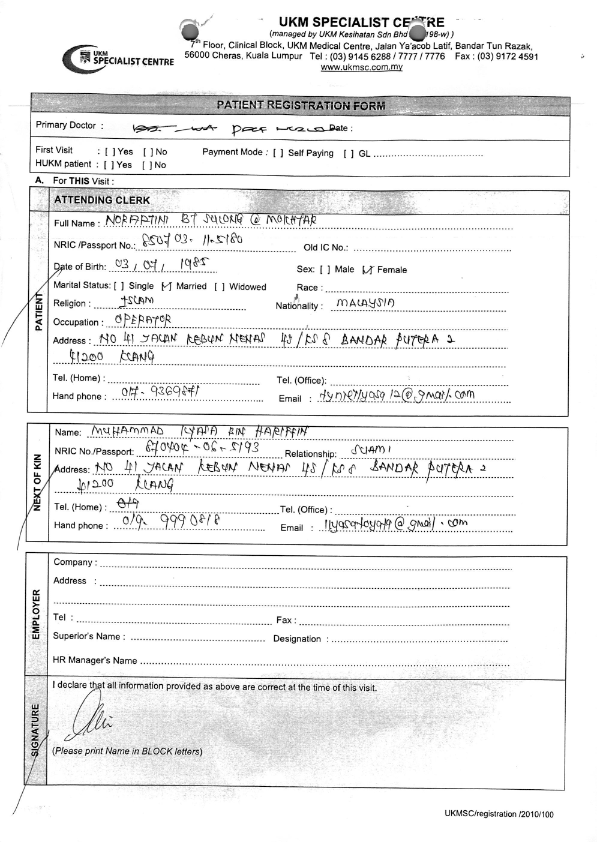 UKM SPECIALIST CENTRE
(managed by UKM Kesihatan Sdn Bhd 198-w) )
UKM
SPECIALIST CENTRE
7th Floor, Clinical Block, UKM Medical Centre, Jalan Ya'acob Latif, Bandar Tun Razak,
56000 Cheras, Kuala Lumpur Tel : (03) 9145 6288 / 7777 / 7776 Fax : (03) 9172 4591
www.ukmsc.com.my
PATIENT REGISTRATION FORM
Primary Doctor : Date :
First Visit : [ ] Yes [ ] No Payment Mode : [ ] Self Paying [ ] GL
HUKM patient : [ ] Yes [ ] No
A. For THIS Visit :
ATTENDING CLERK
PATIENT
Full Name : BT SULONG @ MOKHTAR
NRIC /Passport No.: 850703-11-5180 Old IC No.:
Date of Birth: 03 / 07 / 1985 Sex: [ ] Male [✓] Female
Marital Status: [ ] Single [✓] Married [ ] Widowed Race :
Religion : ISLAM Nationality : MALAYSIA
Occupation : OPERATOR
Address : NO 41 JALAN KEBUN NENAS 4S / KS 8 BANDAR PUTERA 2
41200 KLANG
Tel. (Home) : Tel. (Office):
Hand phone : Email :
NEXT OF KIN
Name: MUHAMMAD ILYASA BIN HARIFFIN
NRIC No./Passport: 870404-06-5193 Relationship: SUAMI
Address: NO 41 JALAN KEBUN NENAS 4S / KS 8 BANDAR PUTERA 2
41200 KLANG
Tel. (Home) : 019 Tel. (Office) :
Hand phone : 019- 9990818 Email :
EMPLOYER
Company :
Address :
Tel : Fax :
Superior's Name : Designation :
HR Manager's Name
SIGNATURE
I declare that all information provided as above are correct at the time of this visit.
(Please print Name in BLOCK letters)
UKMSC/registration /2010/100